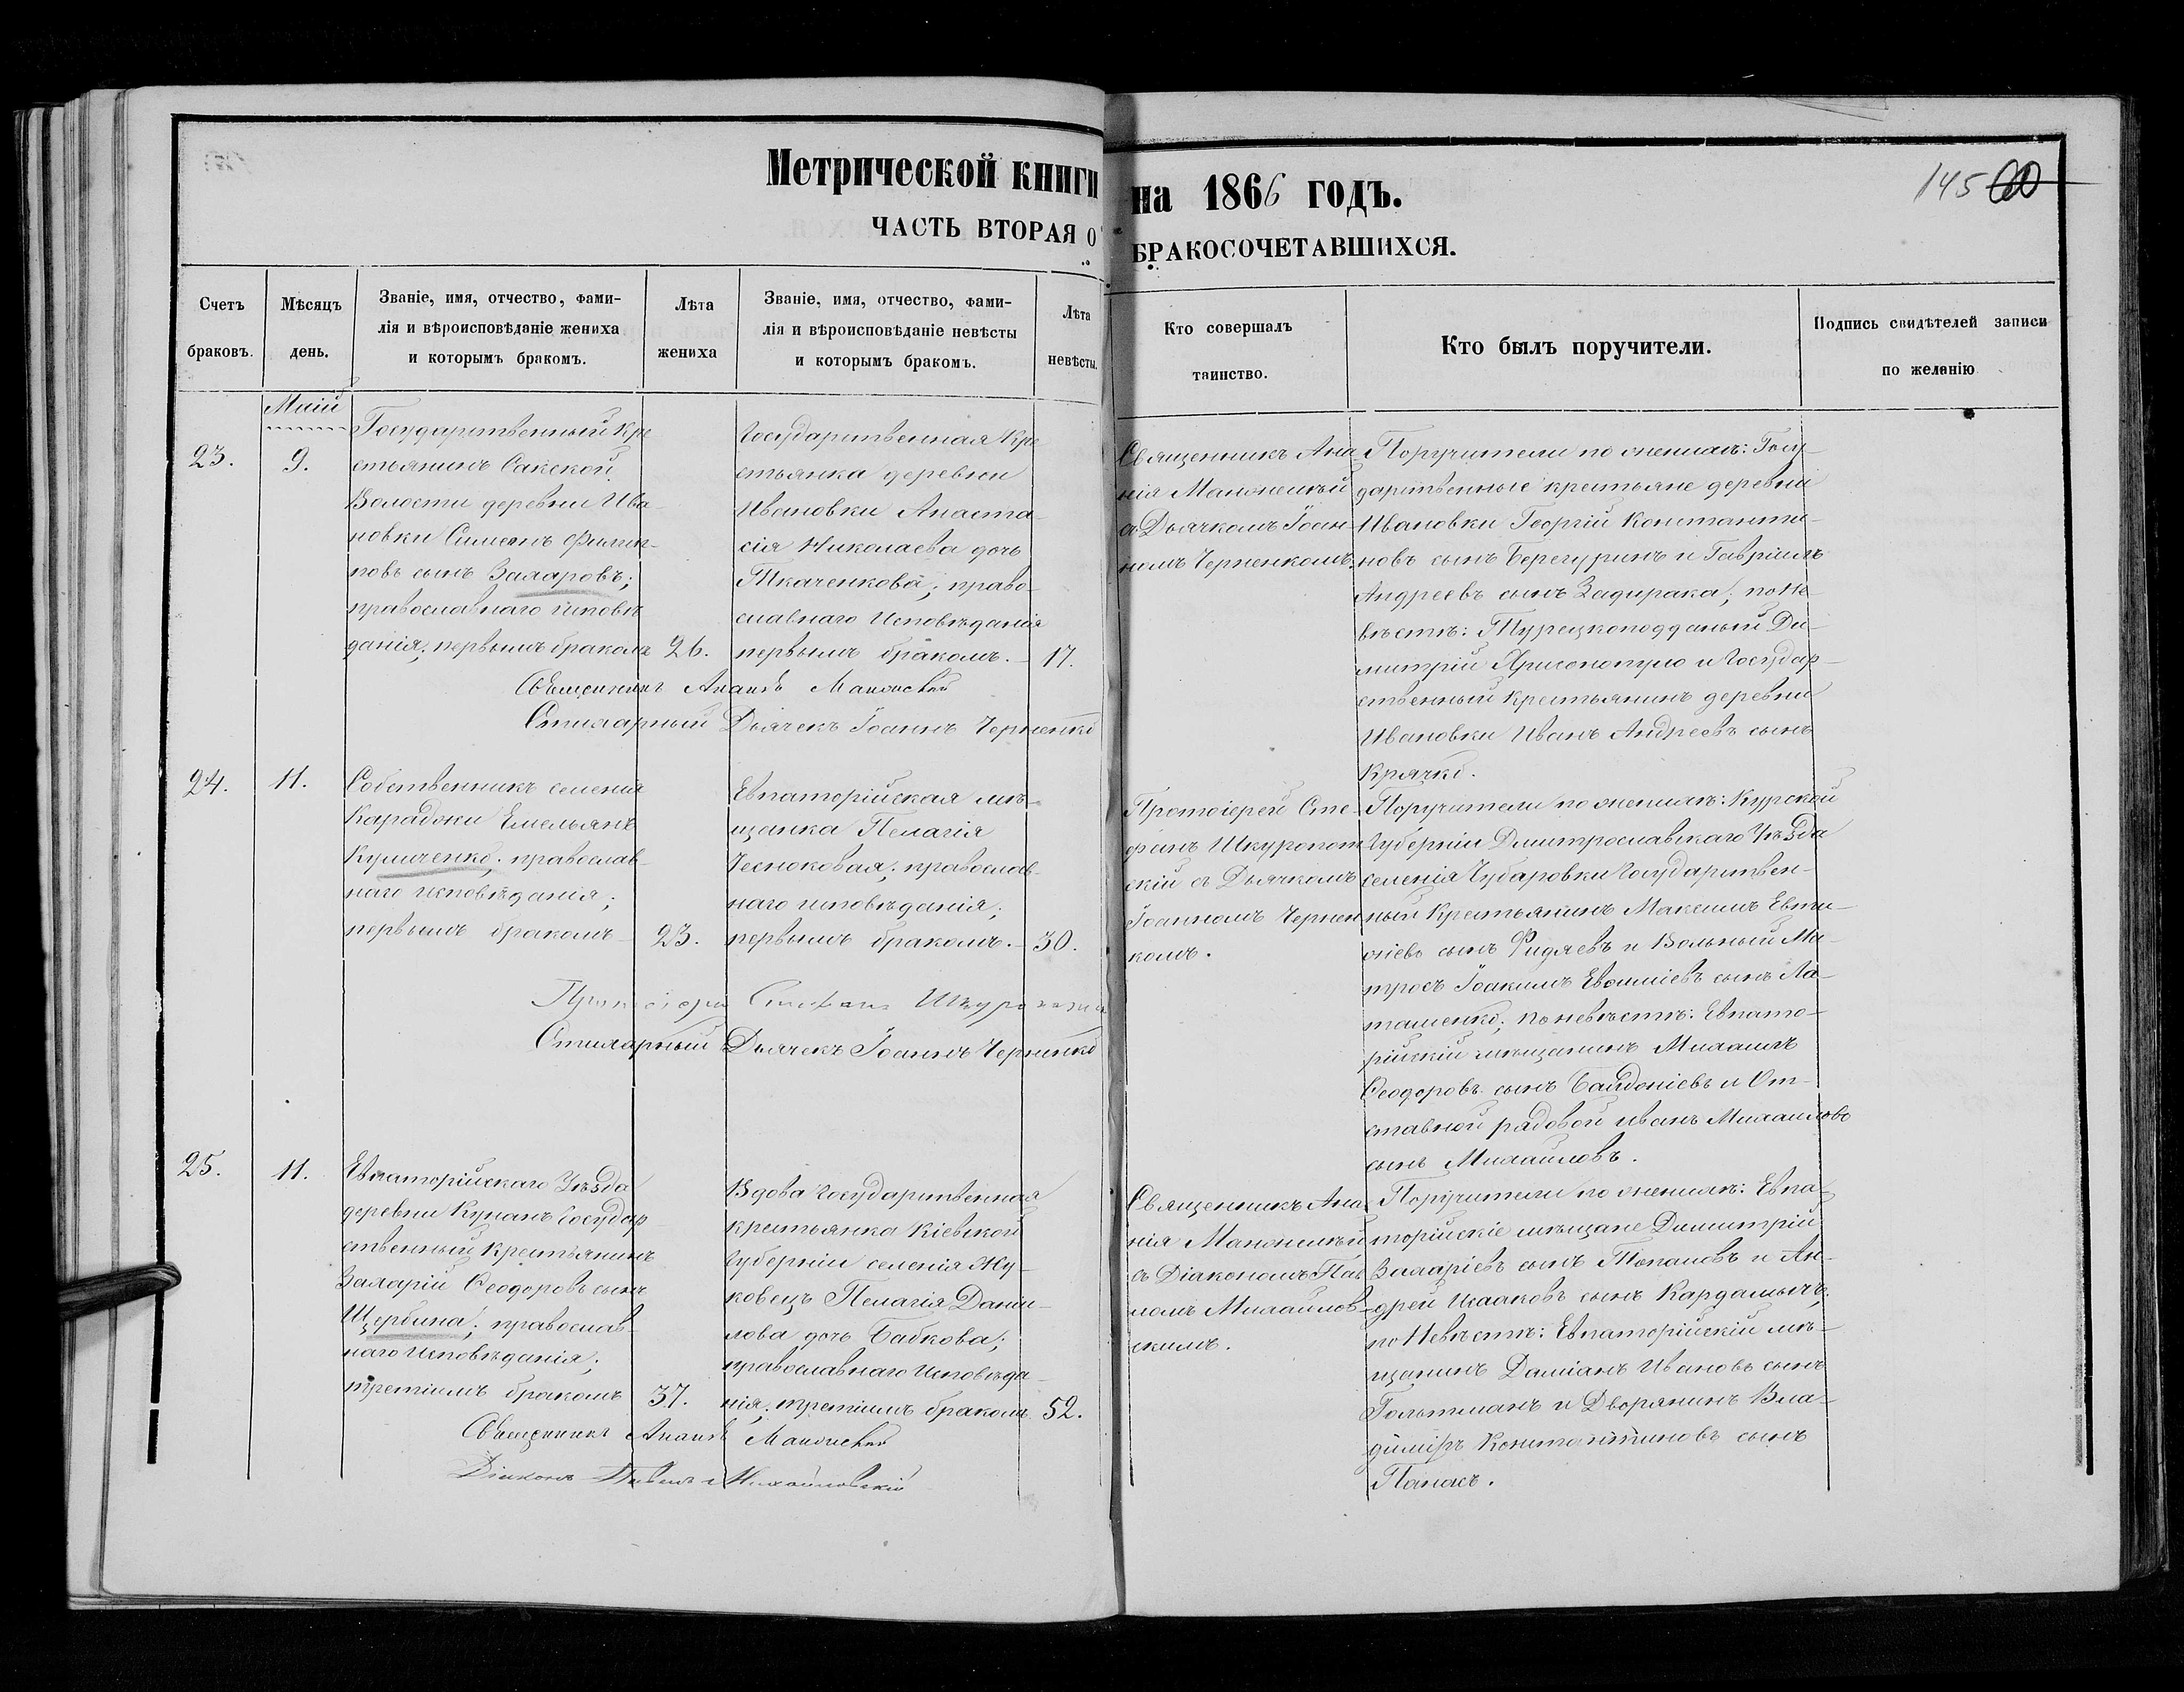 Метрической книги на 1866 годъ.
145 60
ЧАСТЬ ВТОРАЯ О БРАКОСОЧЕТАВШИХСЯ.
Счетъ браковъ.
Мѣсяцъ день.
Званіе, имя, отчество, фами-
лія и вѣроисповѣданіе жениха
и которымъ бракомъ.
Лѣта жениха
Званіе, имя, отчество, фами-
лія и вѣроисповѣданіе невѣсты
и которымъ бракомъ.
Лѣта невѣсты.
Кто совершалъ
таинство.
Кто былъ поручители.
Подпись свидѣтелей записи
по желанію
Маій
23.
9.
Государственный Кре
стьянинъ Сакской
Волости деревни Ива-
новки Симеонъ Филип-
повъ сынъ Захаровъ;
православнаго исповѣ
данія; первымъ бракомъ
26.
Государственная Кре
стьянка деревни
Ивановки Анаста-
сія Николаева дочь
Ткаченкова; право-
славнаго Исповѣданія
первымъ бракомъ.
17.
Священникъ Ананія
Стихарный Дьячекъ Іоаннъ Черненко
Священникъ Ана-
нія
съ Дьячкомъ Іоан-
номъ Черненкомъ.
Поручители по женихѣ: Госу-
дарственные крестьяне деревни
Ивановки Георгій Константи-
новъ сынъ Берегуринъ и Гавріилъ
Андреевъ сынъ Задирака; по Не-
вѣстѣ: Турецкоподданый Ди-
митрій и Государ-
ственный Крестьянинъ деревни
Ивановки Иванъ Андреевъ сынъ
Крячко.
24.
11.
Собственникъ селенія
Караджи Емельянъ
Куличенко; православ-
наго исповѣданія;
первымъ бракомъ
23.
Евпаторійская мѣ-
щанка Пелагія
Чесноковая; православ-
наго исповѣданія;
первымъ бракомъ.
30.
Протоіерей Стефанъ
Стихарный Дьячекъ Іоаннъ Черненко
Протоіерей Сте-
фанъ Шкуропат
скій съ Дьячкомъ
Іоанномъ Чернен
комъ.
Поручители по женихѣ: Курской
Губерніи Дмитрославскаго Уѣзда
селенія Чубаровки Государствен-
ный Крестьянинъ Максимъ Евти-
хіевъ сынъ Фидяевъ и Вольный Ма-
тросъ Іоакимъ Евѳиміевъ сынъ Ла-
ташенко; по невѣстѣ: Евпато-
рійскій мѣщанинъ Михаилъ
Ѳеодоровъ сынъ и От-
ставной рядовой Иванъ Михаиловъ
сынъ Михаиловъ.
25.
11.
Евпаторійскаго Уѣзда
деревни Кунанъ Государ
ственный Крестьянинъ
Захарій Ѳеодоровъ сынъ
Щербина; православ-
наго исповѣданія;
третіимъ бракомъ
37.
Вдова Государственная
крестьянка Кіевской
Губерніи селенія Жу-
ковецъ Пелагія Дани-
лова дочь Бабкова;
православнаго Исповѣда-
нія; третіимъ бракомъ
52.
Священникъ Ананія
Діаконъ Павелъ Михайловскій
Священникъ Ана-
нія
съ Діакономъ Пав
ломъ Михайлов-
скимъ.
Поручители по женихѣ: Евпа-
торійскіе мѣщане Димитрій
Захаріевъ сынъ Топаловъ и Ан-
дрей Исааковъ сынъ Кардашычъ;
по Невѣстѣ: Евпаторійскій мѣ-
щанинъ Даміанъ Ивановъ сынъ
Гольтманъ и Дворянинъ Вла-
диміръ Константиновъ сынъ
Папахъ.